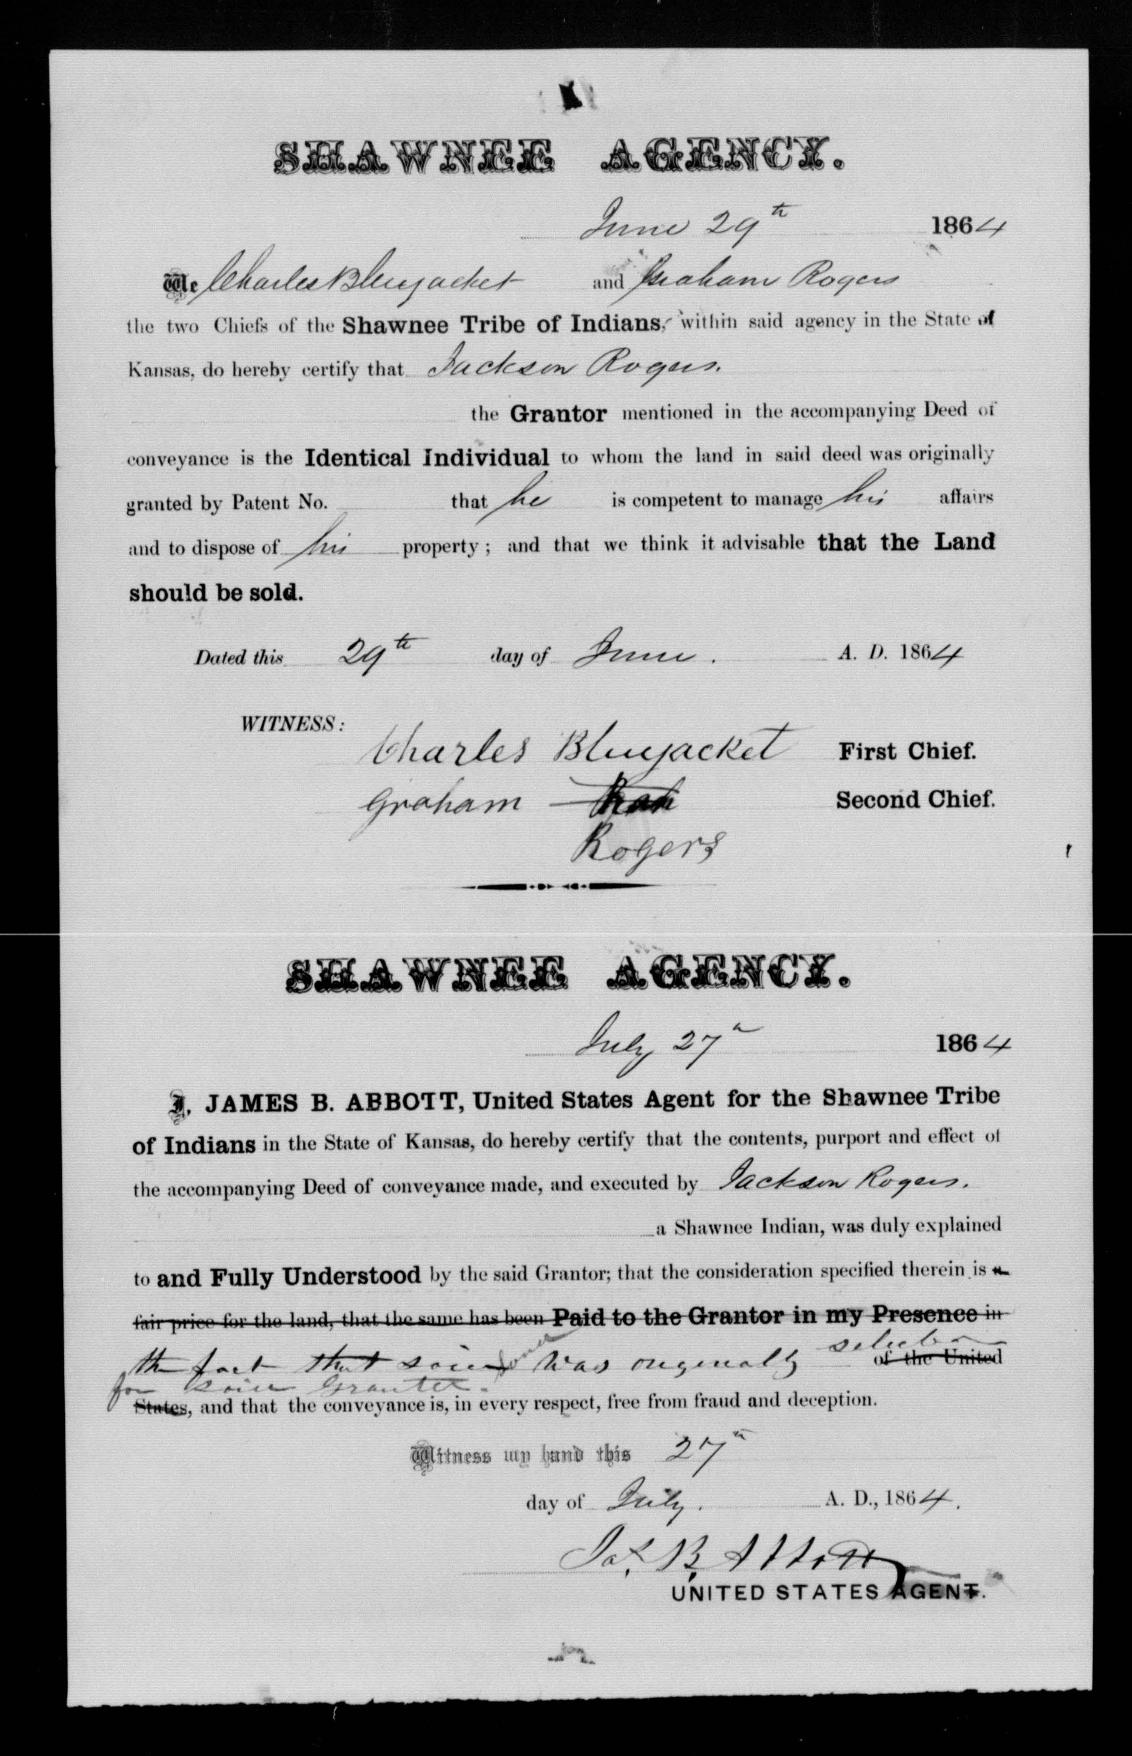 SHAWNEE AGENCY.
June 29th 1864
We Charles Bluejacket and Graham Rogers
the two Chiefs of the Shawnee Tribe of Indians, within said agency in the State of
Kansas, do hereby certify that Jackson Rogers.
the Grantor mentioned in the accompanying Deed of
conveyance is the Identical Individual to whom the land in said deed was originally
granted by Patent No. that he is competent to manage his affairs
and to dispose of his property; and that we think it advisable that the Land
should be sold.
Dated this 29th day of June. A. D. 1864
WITNESS:
Charles Bluejacket First Chief.
Graham Second Chief.
Rogers
SHAWNEE AGENCY.
July 27th 1864
I, JAMES B. ABBOTT, United States Agent for the Shawnee Tribe
of Indians in the State of Kansas, do hereby certify that the contents, purport and effect of
the accompanying Deed of conveyance made, and executed by Jackson Rogers.
a Shawnee Indian, was duly explained
to and Fully Understood by the said Grantor; that the consideration specified therein is a
fair price for the land, that the same has been Paid to the Grantor in my Presence in
the fact that said land was originally selected of the United
for said Grantee.
States, and that the conveyance is, in every respect, free from fraud and deception.
Witness my hand this 27th
day of July. A. D., 1864.
Jas. B. Abbott
UNITED STATES AGENT.